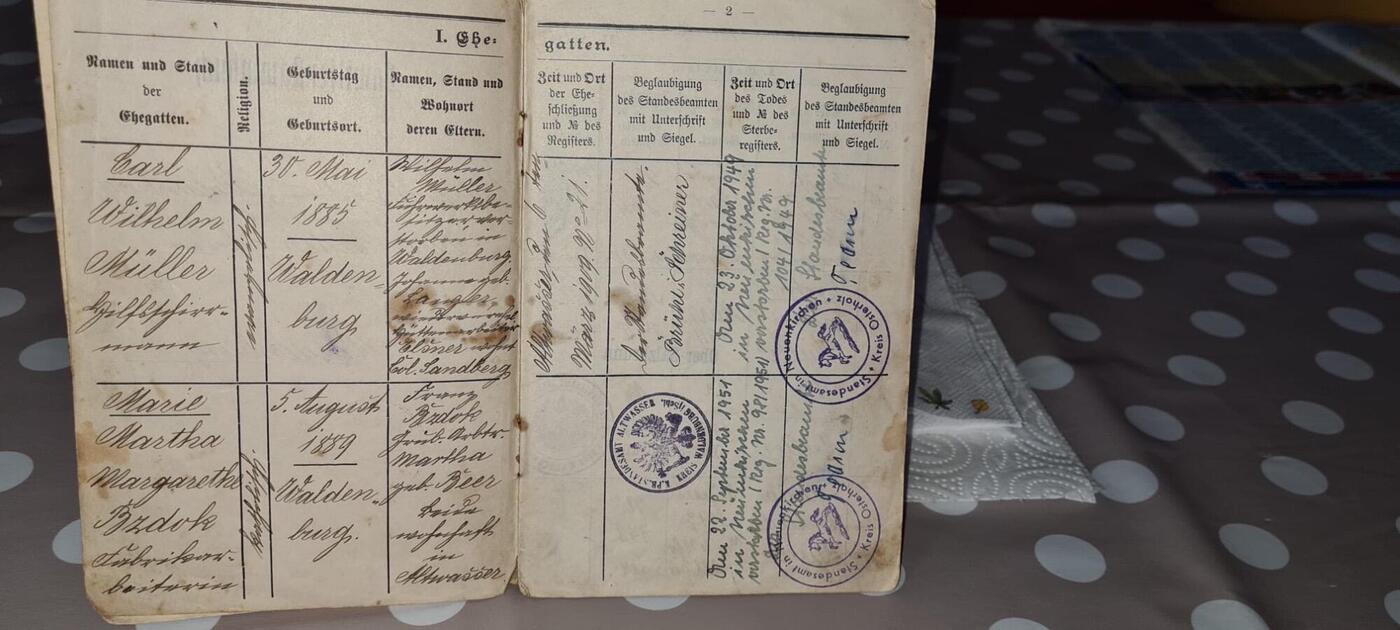 — 2 —
I. Ehe-
gatten.
Namen und Stand
der
Ehegatten.
Religion.
Geburtstag
und
Geburtsort.
Namen, Stand und
Wohnort
deren Eltern.
Zeit und Ort
der Ehe-
schließung
und № des
Registers.
Beglaubigung
des Standesbeamten
mit Unterschrift
und Siegel.
Zeit und Ort
des Todes
und № des
Sterbe-
registers.
Beglaubigung
des Standesbeamten
mit Unterschrift
und Siegel.
Carl
Wilhelm
Müller
Hilfsschirr-
mann
30. Mai
1885
Walden-
burg
Wilhelm
Müller
Fuhrwerksbe-
sitzer ver-
storben in
Waldenburg
Johanne geb.
Elsner wohnt
Col. Sandberg
Altwasser den 6 ten
März 1909. № 21.
Der Standesbeamte.
Am 23. Oktober 1949
in Neuenkirchen
verstorben / Reg. Nr.
104/1949
Standesbeamter
Standesamt in Neuenkirchen • Kreis Osterholz •
Marie
Martha
Margarethe
Bzdok
Fabrikar-
beiterin
5. August
1889
Walden-
burg.
Franz
Bzdok
Grub. Arbtr.
Martha
geb. Beer
beide
wohnhaft
in
Altwasser
K. PR. STANDESAMT ALTWASSER KREIS WALDENBURG i/Schl.
Am 22. September 1951
in Neuenkirchen
verstorben / Reg. Nr. 98/1951/
Standesbeamter
Standesamt in Neuenkirchen • Kreis Osterholz •